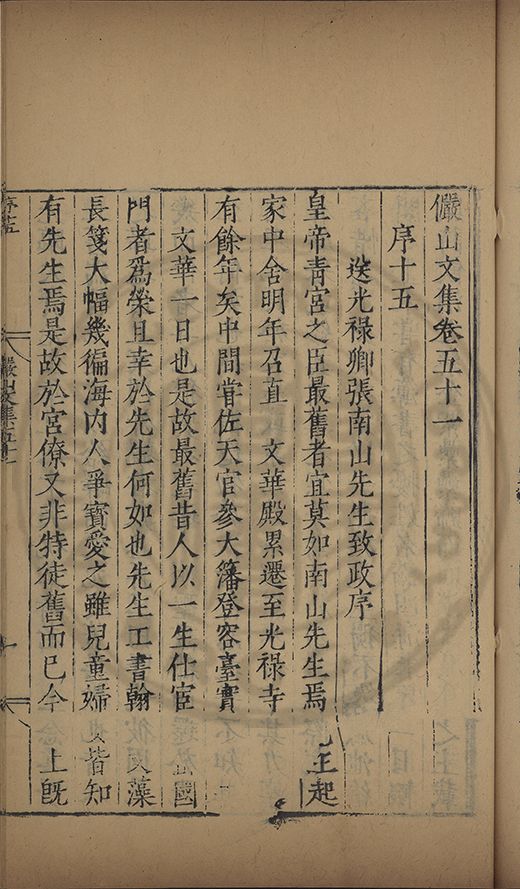 儼山文集卷五十一
序十五
送光祿卿張南山先生致政序
皇帝青宮之臣最舊者宜莫如南山先生焉先生起
家中舍明年召直 文華殿累遷至光祿寺
有餘年矣中間甞佐天官參大籓登容臺實
文華一日也是故最舊昔人以一生仕宦 國
門者爲榮且幸於先生何如也先生工書翰 藻
長箋大幅幾徧海内人爭寶愛之雖兒童婦女皆知
有先生焉是故於宮僚又非特徒舊而已今 上旣
序十五
儼山文集五十一
一